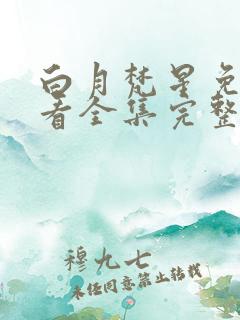 白月梵星免
看全集完整
穆九七
未经同意禁止转载